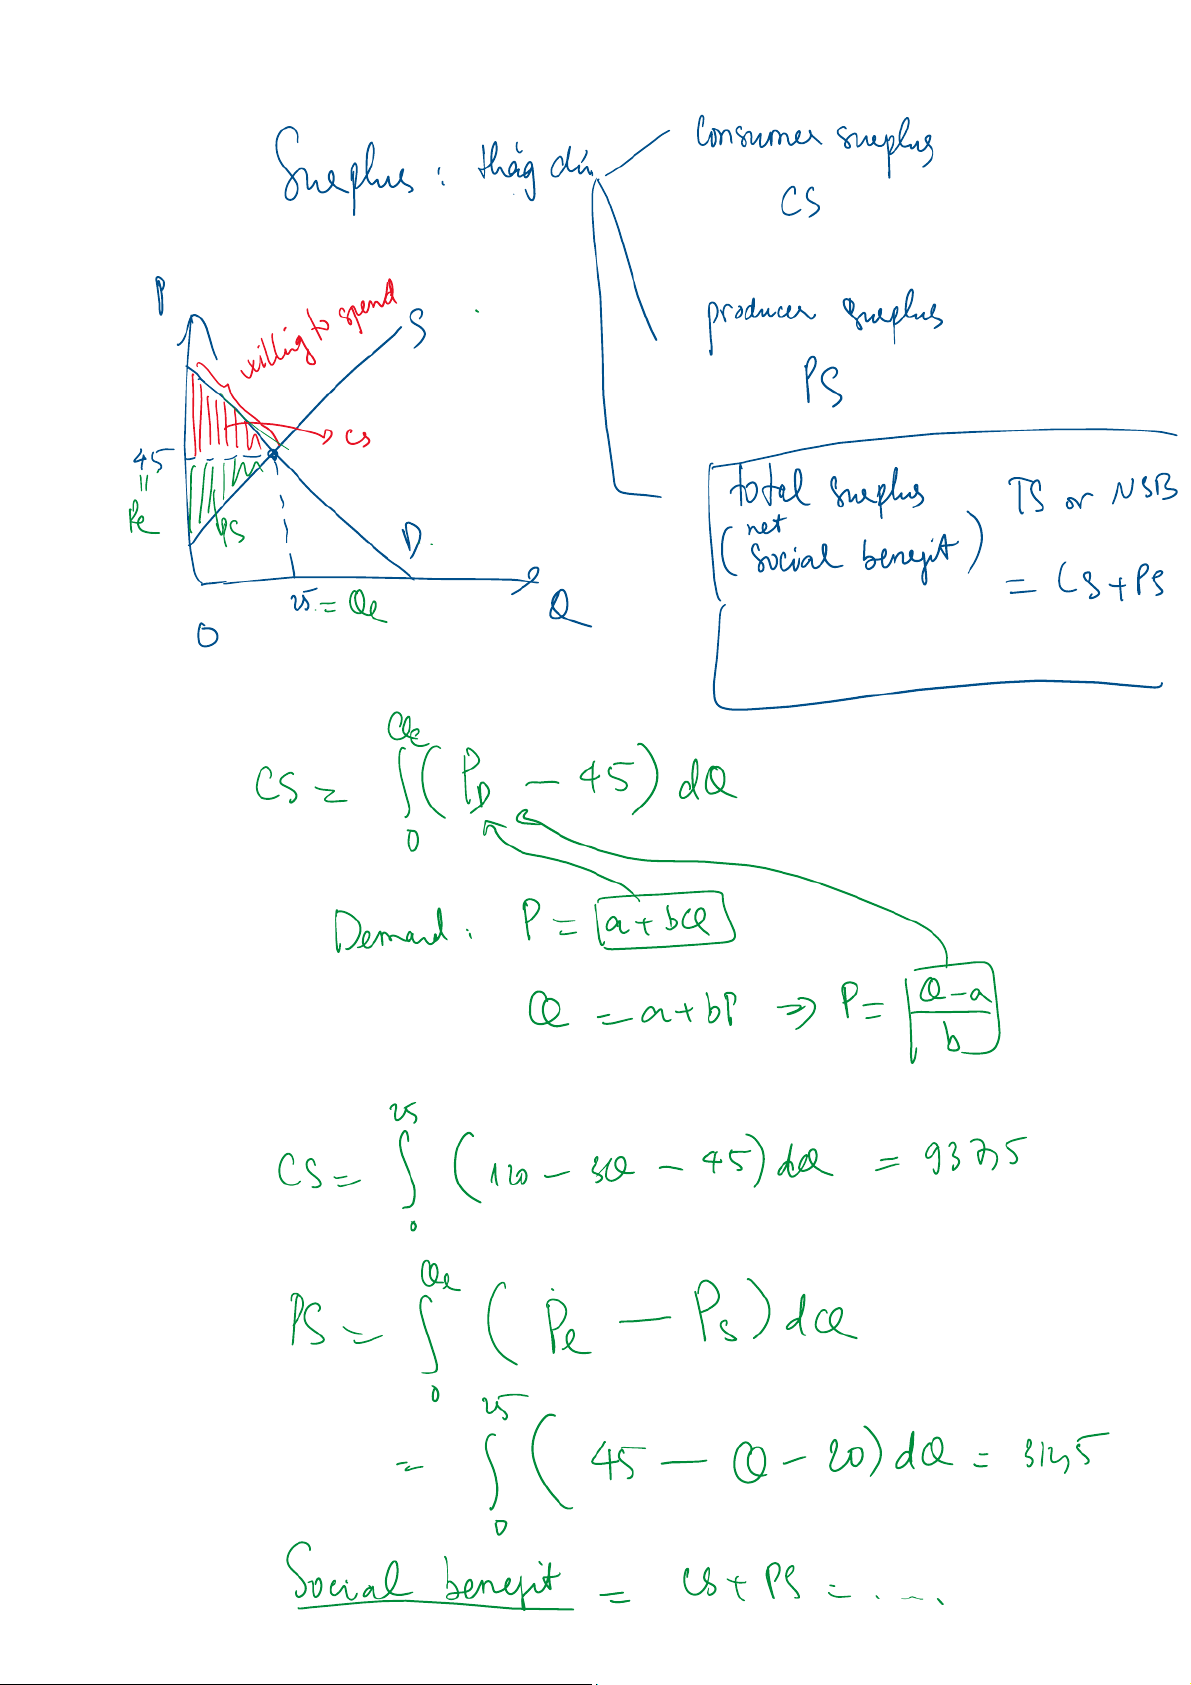 Surplus : thặg dư
Consumer surplus
CS
producer surplus
PS
total surplus TS or NSB
(net social benefit) = CS + PS
P
willing to spend
S
CS
45
=
Pe
PS
D
25 = Qe
Q
0
CS = ∫₀^Qe (P_D − 45) dQ
Demand : P = a + bQ
Q = a + bP => P = (Q − a)/b
CS = ∫₀^25 (120 − 3Q − 45) dQ = 937,5
PS = ∫₀^Qe (Pe − Ps) dQ
= ∫₀^25 (45 − Q − 20) dQ = 312,5
Social benefit = CS + PS = ....